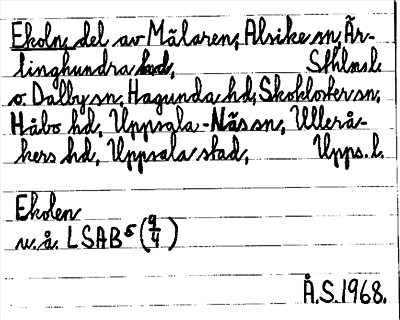 Ekoln, del av Mälaren, Alsike sn, Är-
linghundra hd, Sthlms l.
o. Dalby sn, Hagunda hd, Skokloster sn,
Håbo hd, Uppsala-Näs sn, Ullerå-
kers hd, Uppsala stad, Upps. l.
Ekolen
u.å. LSAB 5 (9/4)
Å.S. 1968.